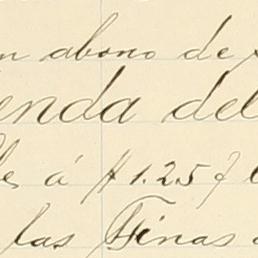 abono de
enda del
á $1.25
las Finas